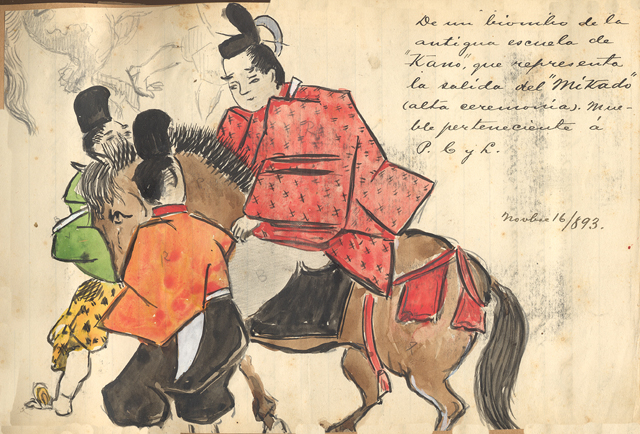 De un biombo de la
antigua escuela de
"Kano", que representa
la salida del "Mikado"
(alta ceremonia). Mue-
ble perteneciente á
P. C y L.
Novbre 16/893.